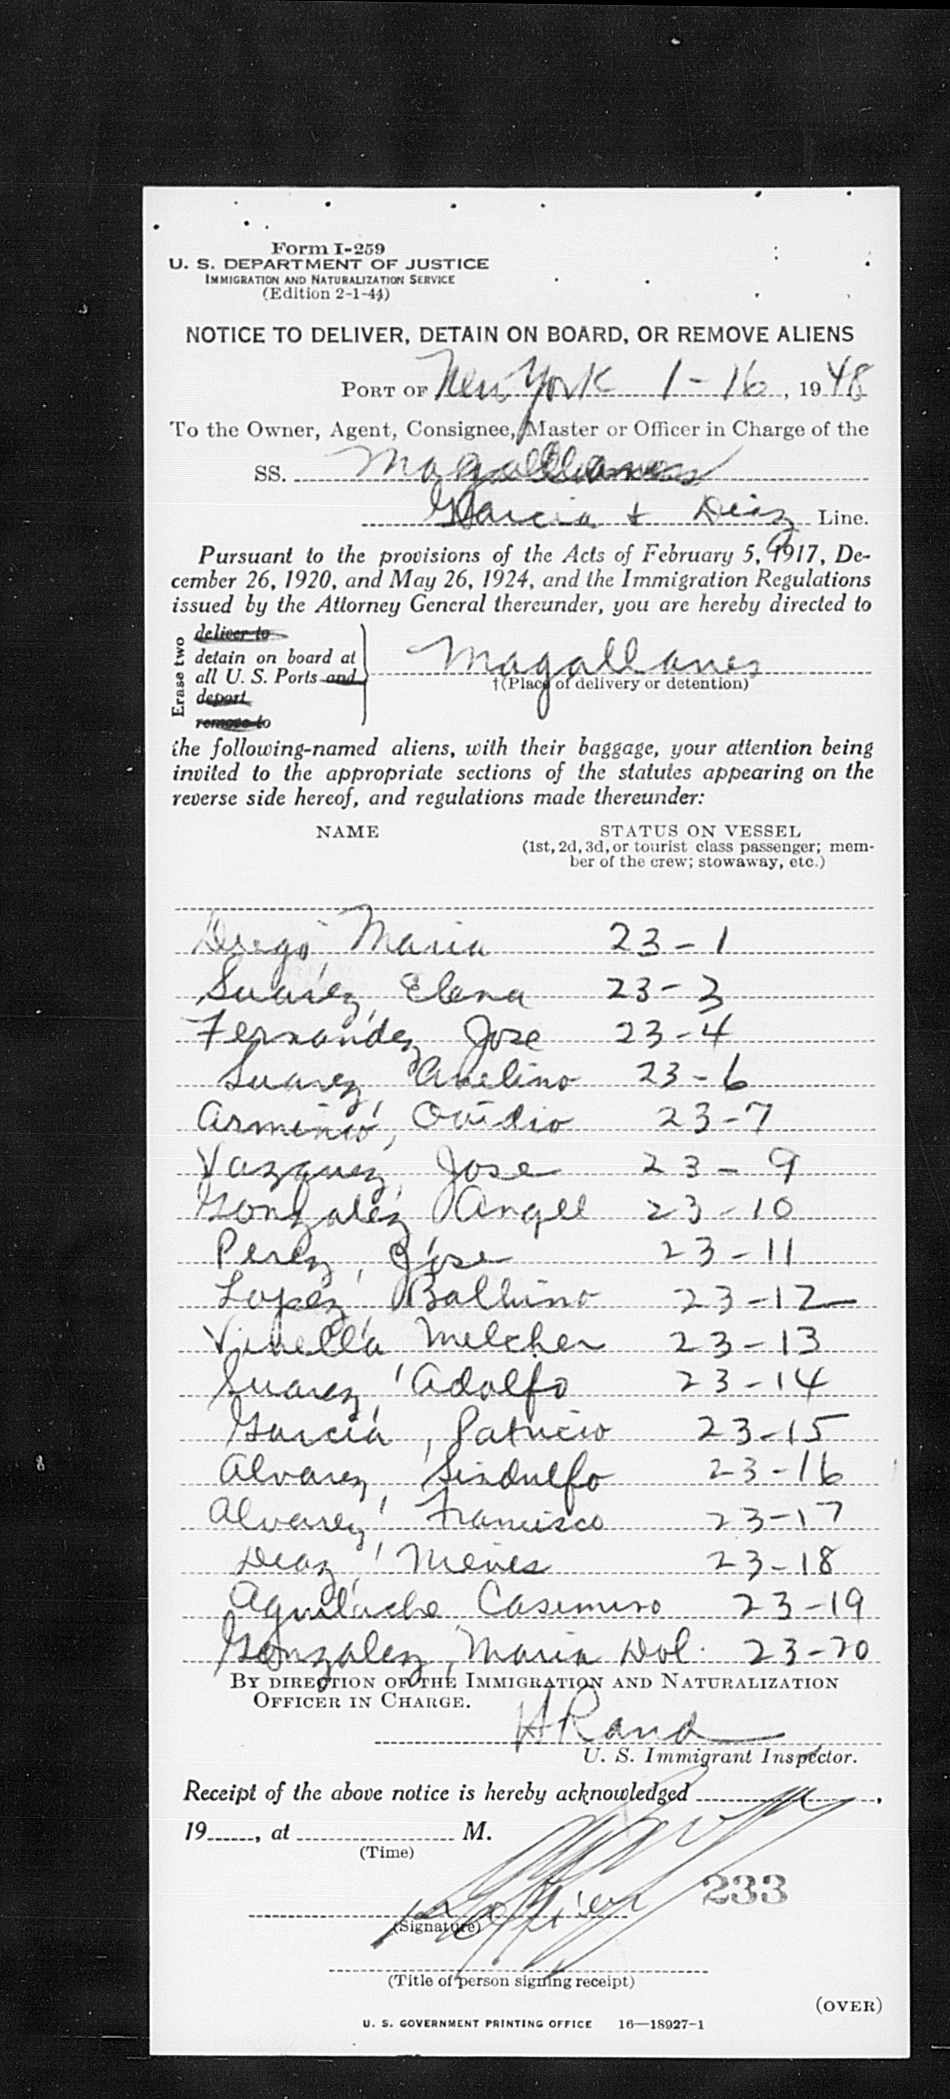 Form I-259
U. S. DEPARTMENT OF JUSTICE
IMMIGRATION AND NATURALIZATION SERVICE
(Edition 2-1-44)
NOTICE TO DELIVER, DETAIN ON BOARD, OR REMOVE ALIENS
PORT OF New York 1-16, 1948
To the Owner, Agent, Consignee, Master or Officer in Charge of the
SS. Magallanes
Garcia + Diaz Line.
Pursuant to the provisions of the Acts of February 5, 1917, De-
cember 26, 1920, and May 26, 1924, and the Immigration Regulations
issued by the Attorney General thereunder, you are hereby directed to
Erase two
deliver to
detain on board at
all U. S. Ports and
deport
remove to
Magallanes
†(Place of delivery or detention)
the following-named aliens, with their baggage, your attention being
invited to the appropriate sections of the statutes appearing on the
reverse side hereof, and regulations made thereunder:
NAME STATUS ON VESSEL
(1st, 2d, 3d, or tourist class passenger; mem-
ber of the crew; stowaway, etc.)
Maria 23-1
Suarez, Elena 23-3
Fernandez Jose 23-4
Suarez, Avelino 23-6
Arminio, Ovidio 23-7
Vazquez, Jose 23-9
Gonzalez Angel 23-10
Perez, Jose 23-11
Lopez, Balbino 23-12
Vinella Melcher 23-13
Suarez, Adolfo 23-14
Garcia, Patricio 23-15
Alvarez, Sindulfo 23-16
Alvarez, Francisco 23-17
Diaz, Nieves 23-18
Aguilache Casimiro 23-19
Gonzalez, Maria Dol. 23-20
BY DIRECTION OF THE IMMIGRATION AND NATURALIZATION
OFFICER IN CHARGE.
H Rand
U. S. Immigrant Inspector.
Receipt of the above notice is hereby acknowledged ,
19 , at M.
(Time)
233
(Signature)
(Title of person signing receipt)
(OVER)
U. S. GOVERNMENT PRINTING OFFICE 16—18927-1